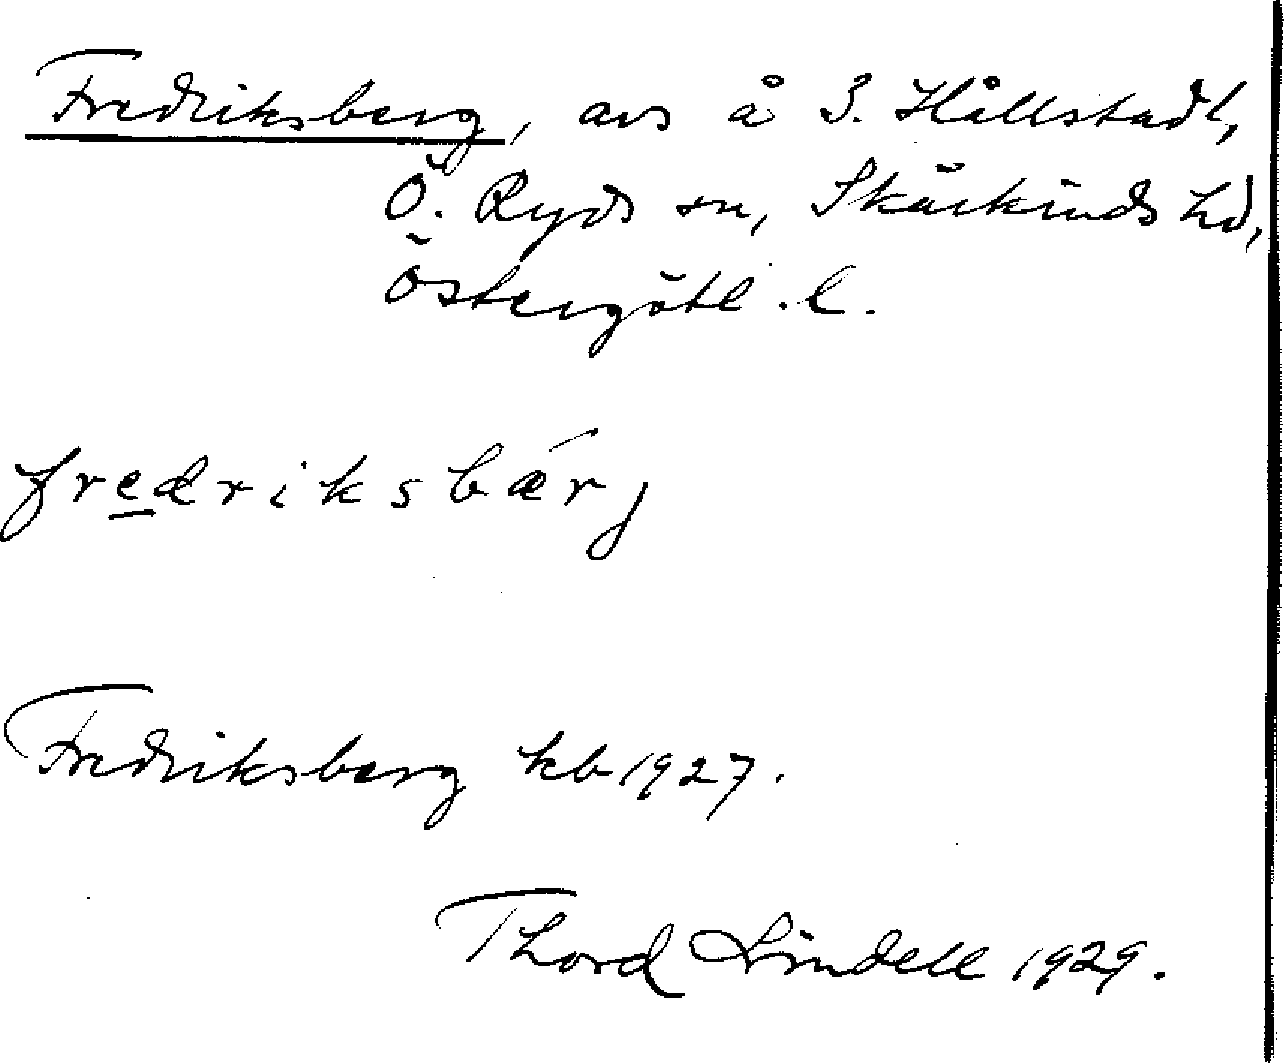 Fredriksberg, avs å S. Hållstad,
Ö. Ryds sn, Skärkinds hd,
Östergötl. l.
fredriksbærj
Fredriksberg kb 1927.
Thord Lindell 1929.